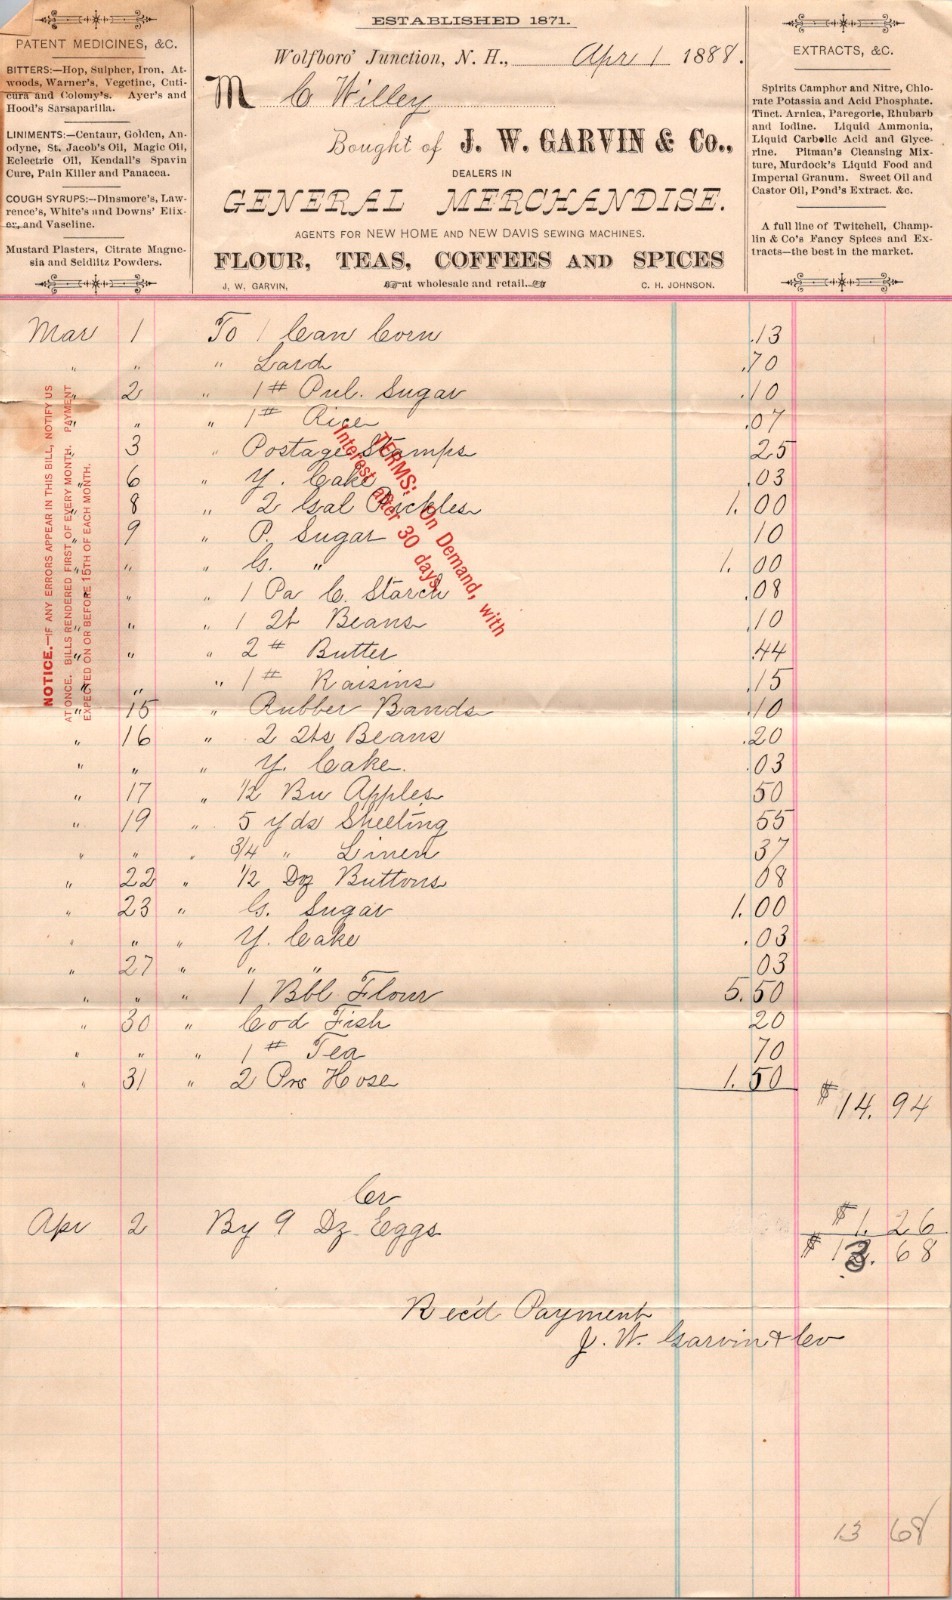 ESTABLISHED 1871.
PATENT MEDICINES, &C.
BITTERS:—Hop, Sulpher, Iron, At-
woods, Warner's, Vegetine, Cuti-
cura and Colomy's. Ayer's and
Hood's Sarsaparilla.
LINIMENTS:—Centaur, Golden, An-
odyne, St. Jacob's Oil, Magic Oil,
Eclectric Oil, Kendall's Spavin
Cure, Pain Killer and Panacea.
COUGH SYRUPS:—Dinsmore's, Law-
rence's, White's and Downs' Elix-
er, and Vaseline.
Mustard Plasters, Citrate Magne-
sia and Seidlitz Powders.
Wolfboro' Junction, N. H., Apr 1 1888.
M C Willey
Bought of J. W. GARVIN & Co.,
DEALERS IN
GENERAL MERCHANDISE.
AGENTS FOR NEW HOME AND NEW DAVIS SEWING MACHINES.
FLOUR, TEAS, COFFEES AND SPICES
J. W. GARVIN, at wholesale and retail. C. H. JOHNSON.
EXTRACTS, &C.
Spirits Camphor and Nitre, Chlo-
rate Potassia and Acid Phosphate.
Tinct. Arnica, Paregoric, Rhubarb
and Iodine. Liquid Ammonia,
Liquid Carbolic Acid and Glyce-
rine. Pitman's Cleansing Mix-
ture, Murdock's Liquid Food and
Imperial Granum. Sweet Oil and
Castor Oil, Pond's Extract. &c.
A full line of Twitchell, Champ-
lin & Co's Fancy Spices and Ex-
tracts—the best in the market.
NOTICE.—IF ANY ERRORS APPEAR IN THIS BILL, NOTIFY US
AT ONCE. BILLS RENDERED FIRST OF EVERY MONTH. PAYMENT
EXPECTED ON OR BEFORE 15TH OF EACH MONTH.
TERMS; On Demand, with
Interest after 30 days.
Mar 1 To 1 Can Corn .13
" " " Lard .70
" 2 " 1# Pul. Sugar .10
" " " 1# Rice .07
" 3 " Postage Stamps 25
" 6 " Y. Cake .03
" 8 " 2 Gal Pickles 1.00
" 9 " P. Sugar 10
" " " G. " 1.00
" " " 1 Pa C. Starch .08
" " " 1 2t Beans .10
" " " 2# Butter .44
" " " 1# Raisins .15
" 15 " Rubber Bands .10
" 16 " 2 2ts Beans .20
" " " Y. Cake. .03
" 17 " 1/2 Bu Apples 50
" 19 " 5 Yds Sheeting 55
" " " 3/4 " Linen 37
" 22 " 1/2 Dz Buttons 08
" 23 " G. Sugar 1.00
" " " Y. Cake .03
" 27 " " " 03
" " " 1 Bbl Flour 5.50
" 30 " Cod Fish 20
" " " 1# Tea 70
" 31 " 2 Prs Hose 1.50
$14.94
Cr
Apr 2 By 9 Dz Eggs $1.26
$13.68
Rec'd Payment
J. W. Garvin & Co
13 68